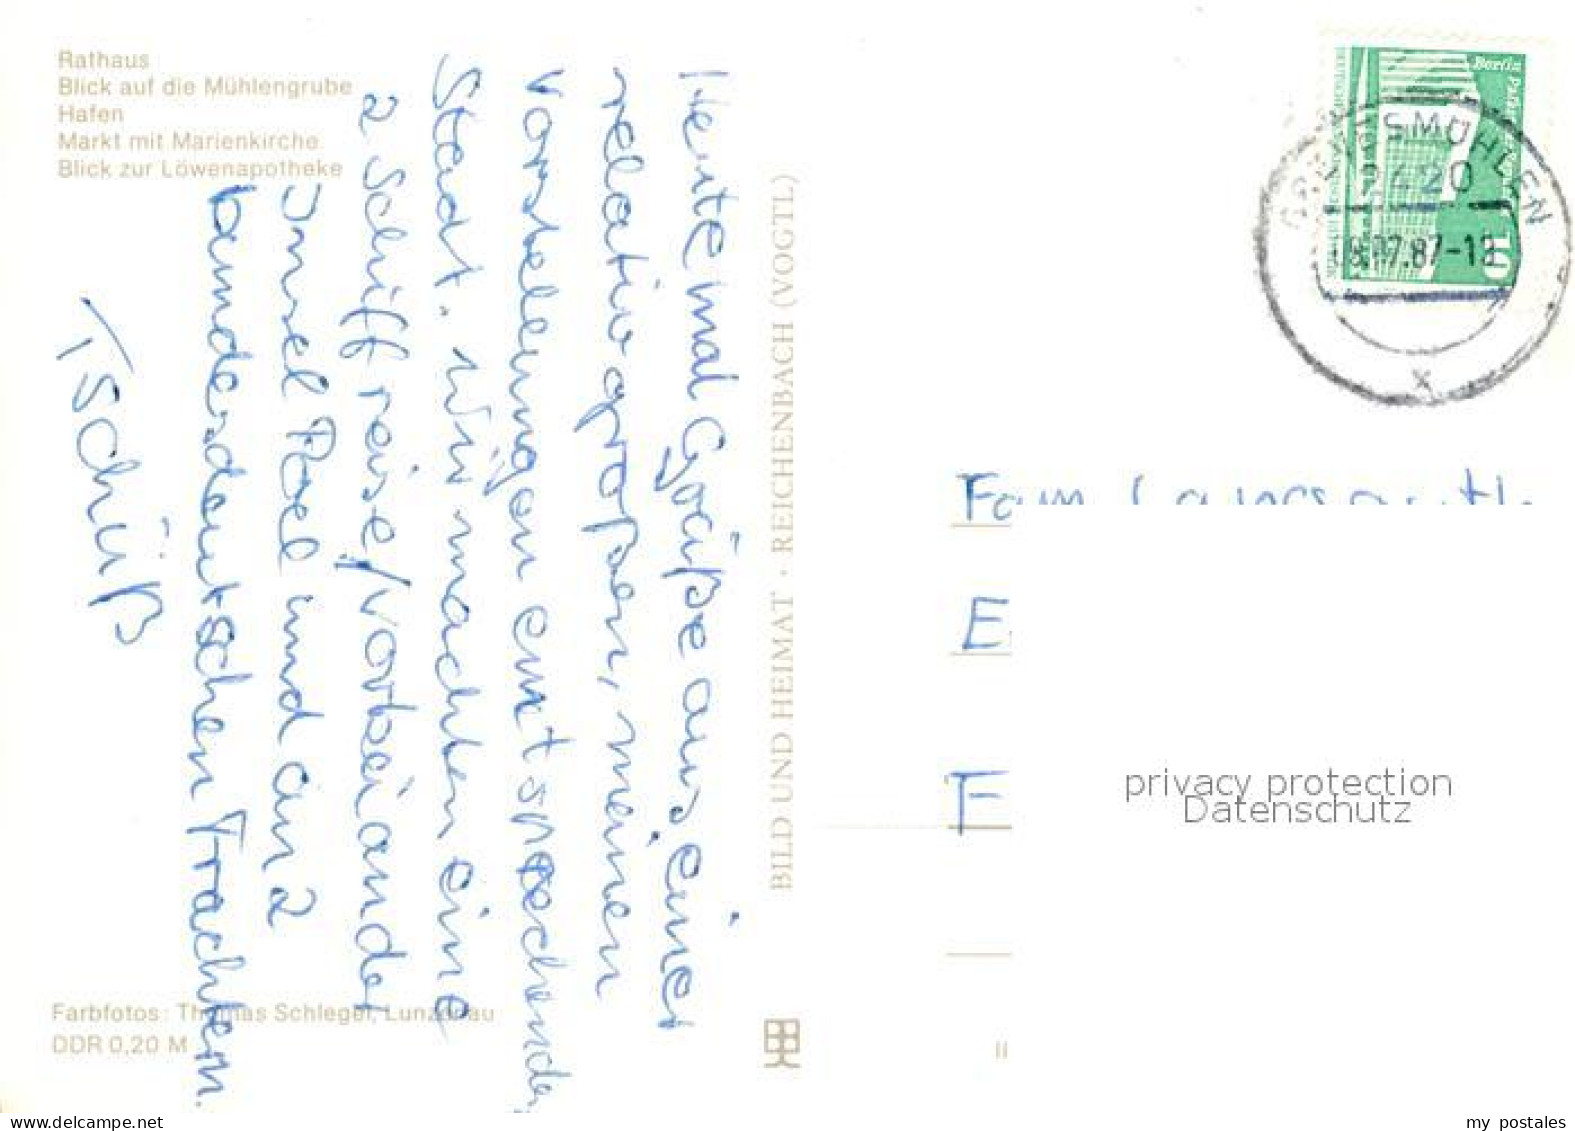 Rathaus
Blick auf die Mühlengrube
Hafen
Markt mit Marienkirche
Blick zur Löwenapotheke
Heute mal Grüße aus einer
relativ großen, meinen
Vorstellungen entsprechenden
Stadt. Wir machten eine
2 Schiffreise / vorbei an der
Insel Poel und an 2
bundesdeutschen Frachtern.
Tschüß
Farbfotos: Thomas Schlegel, Lunzenau
DDR 0,20 M
BILD UND HEIMAT · REICHENBACH (VOGTL)
Berlin
10
GREVESMÜHLEN
2420
.07.87-13
x
Fam.
E
F
II
privacy protection
Datenschutz
www.delcampe.net
my_postales